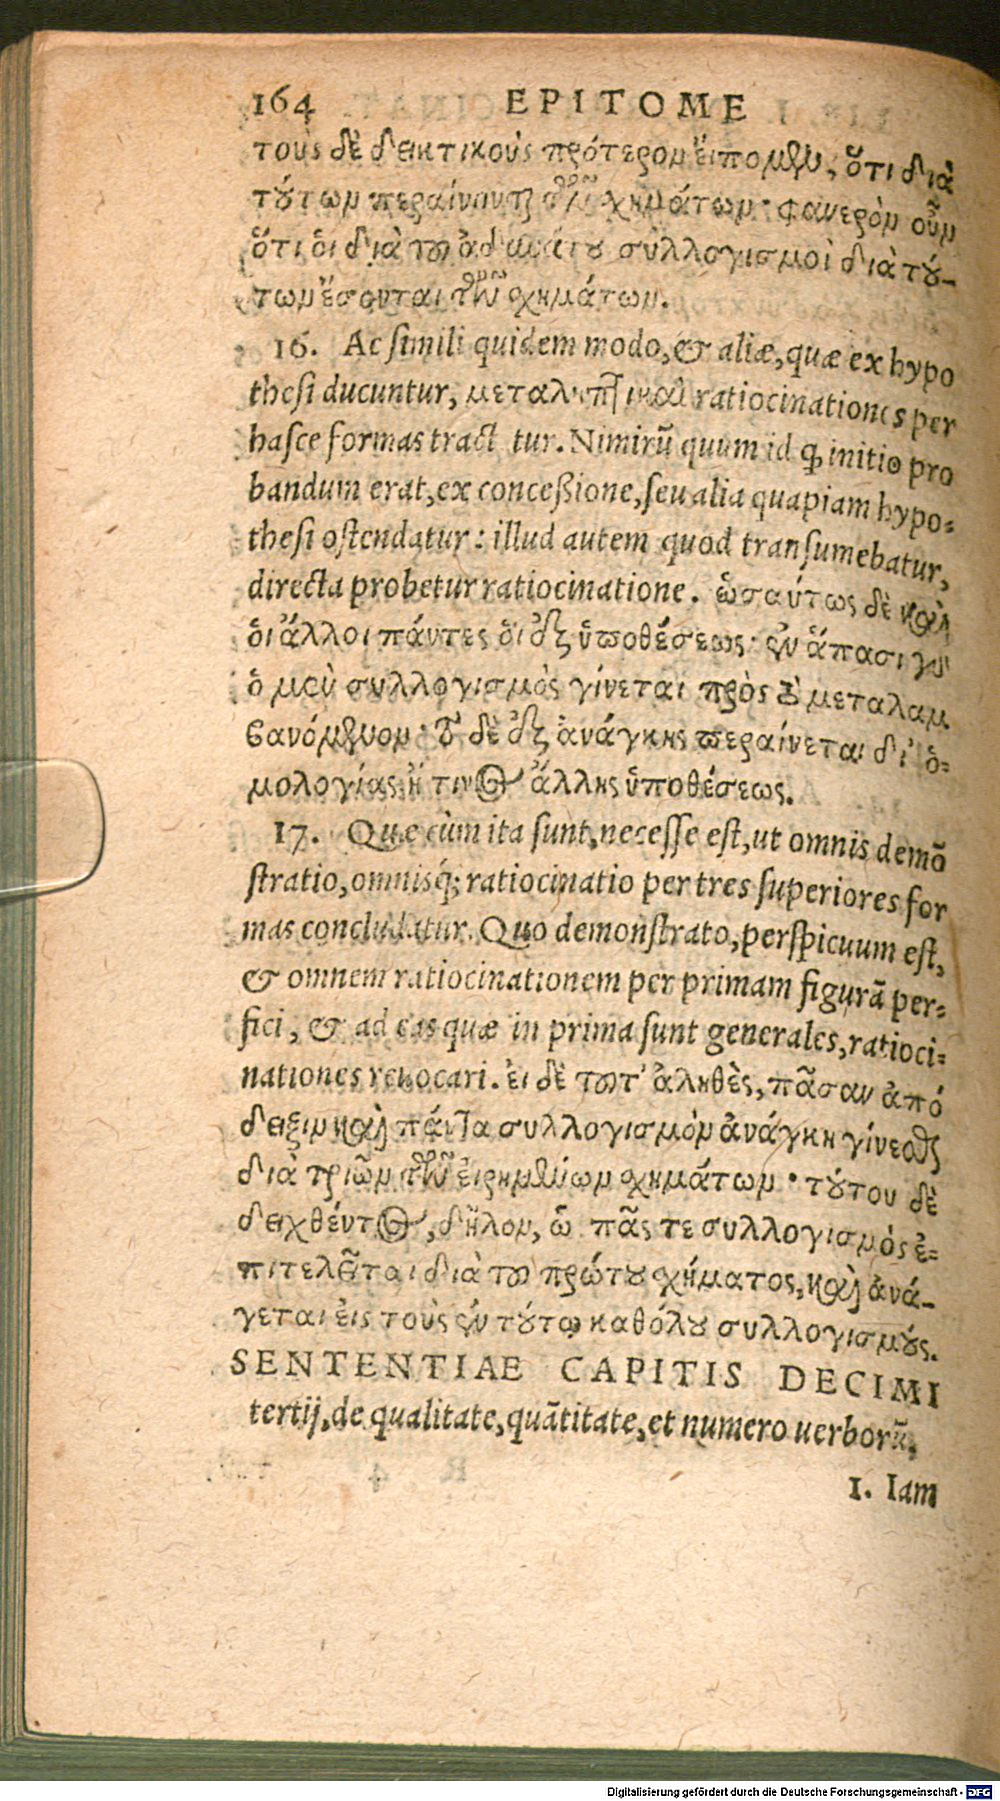 164 EPITOME
τοὺς δὲ δεικτικοὺς πρότερον εἴπομεν, ὅτι διὰ
τούτων περαίνονται τῶν σχημάτων· φανερὸν οὖν
ὅτι ὁι διὰ τοῦ ἀδυνάτου συλλογισμοὶ διὰ τού-
των ἔσονται τῶν σχημάτων.
16. Ac simili quidem modo, & aliæ, quæ ex hypo
thesi ducuntur, μεταληπτικαὶ ratiocinationes per
hasce formas tract tur. Nimirũ quum id qđ initio pro
bandum erat, ex conceßione, seu alia quapiam hypo-
thesi ostendatur: illud autem quod transumebatur,
directa probetur ratiocinatione. ὡσαύτως δὲ καὶ
ὁι ἄλλοι πάντες ὁι ἐξ ὑποθέσεως· ἐν ἅπασι γὰρ
ὁ μὲν συλλογισμὸς γίνεται πρὸς τὸ μεταλαμ
βανόμενον· τὸ δὲ ἐξ ἀνάγκης περαίνεται δι' ὁ-
μολογίας ἤ τινος ἄλλης ὑποθέσεως.
17. Quæ cùm ita sunt, necesse est, ut omnis demõ
stratio, omnisq́; ratiocinatio per tres superiores for
mas concludatur. Quo demonstrato, perspicuum est,
& omnem ratiocinationem per primam figurã per-
fici, & ad eas quæ in prima sunt generales, ratioci-
nationes reuocari. ἐι δὲ τοῦτ' ἀληθὲς, πᾶσαν ἀπό
δειξιν καὶ πάντα συλλογισμὸν ἀνάγκη γίνεσθαι
διὰ τριῶν τῶν ἐιρημένων σχημάτων· τούτου δὲ
δειχθέντος, δῆλον, ὡ πᾶς τε συλλογισμὸς ἐ-
πιτελεῖται διὰ τοῦ πρώτου σχήματος, καὶ ἀνά-
γεται ἐις τοὺς ἐν τούτῳ καθόλου συλλογισμούς.
SENTENTIAE CAPITIS DECIMI
tertij, de qualitate, quãtitate, et numero uerborũ.
1. Iam
Digitalisierung gefördert durch die Deutsche Forschungsgemeinschaft - DFG